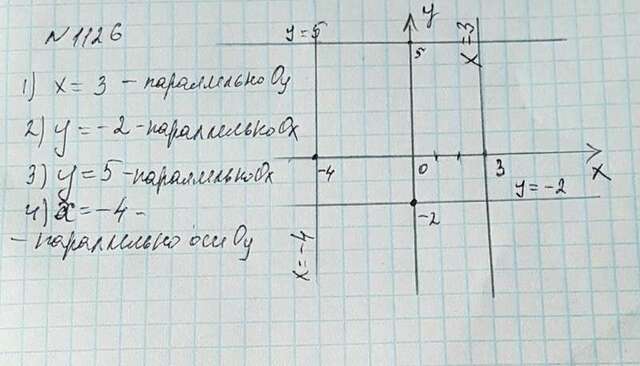 N 1126
1) x = 3 – параллельно Oy
2) y = -2 - параллельно Ox
3) y = 5 - параллельно Ox
4) x = -4 -
- параллельно оси Oy
y = 5
y
x = 3
5
-4
0
3
x
y = -2
-2
x = -4